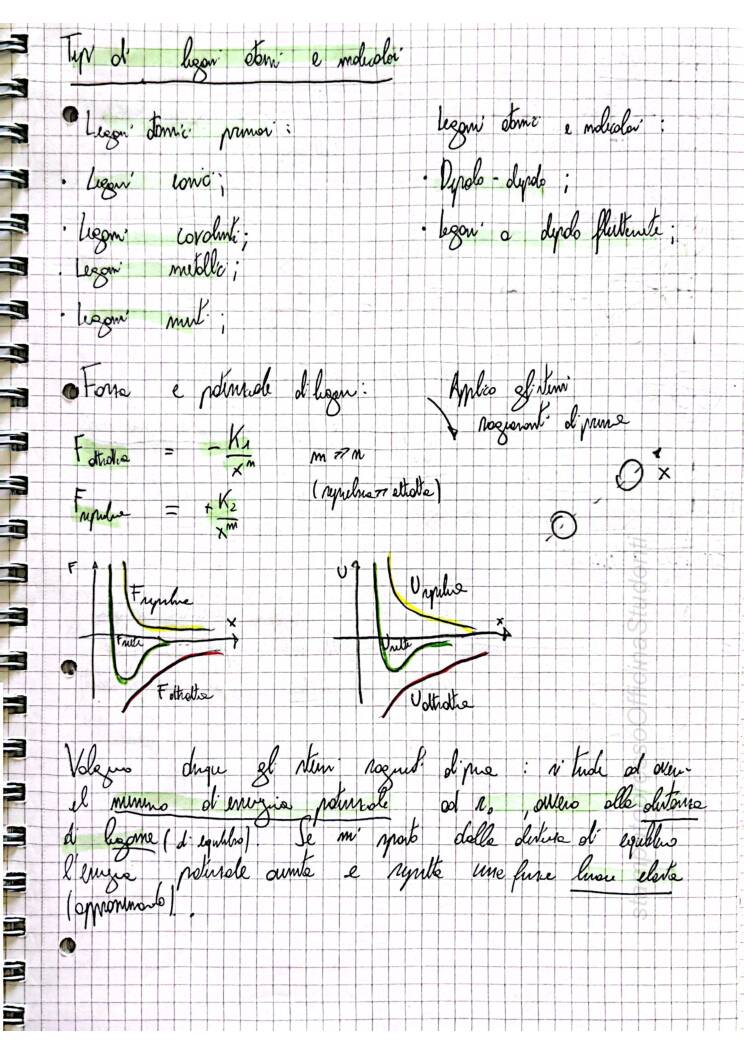 Tipi di legami atomi e molecolari
Legami atomici primari :
Legami ionici ;
Legami covalenti ;
Legami metallici ;
Legami misti ;
Legami atomici e molecolari :
Dipolo - dipolo ;
Legami a dipolo fluttuante ;
Forza e potenziale di legami :
Applico gli stessi
ragionamenti di prima
F attrattiva = - K1 / x^n
m >> n
(repulsiva >> attrattiva)
F repulsiva = + K2 / x^m
x
F
F repulsiva
x
F netta
F attrattiva
U
U repulsiva
x
U netta
U attrattiva
Valgono dunque gli stessi ragionamenti di prima : si tende ad avere
il minimo di energia potenziale ad r0 , ovvero alla distanza
di legame ( di equilibrio) Se mi sposto dalla distanza di equilibrio
l'energia potenziale aumenta e rispetta una lineare elastica
(approssimando) .